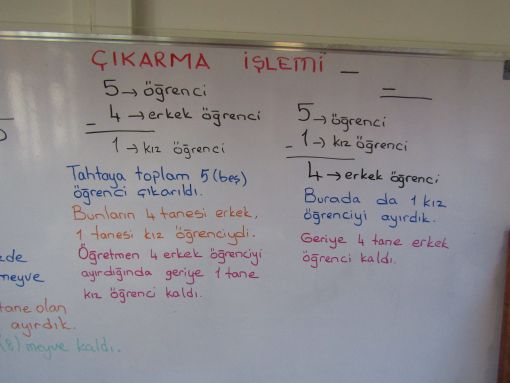 ÇIKARMA İŞLEMİ —
5 → öğrenci
4 → erkek öğrenci
1 → kız öğrenci
Tahtaya toplam 5 (beş)
öğrenci çıkarıldı.
Bunların 4 tanesi erkek,
1 tanesi kız öğrenciydi.
Öğretmen 4 erkek öğrenciyi
ayırdığında geriye 1 tane
kız öğrenci kaldı.
5 → öğrenci
- 1 → kız öğrenci
4 → erkek öğrenci
Burada da 1 kız
öğrenciyi ayırdık.
Geriye 4 tane erkek
öğrenci kaldı.
zde
meyve
tane olan
ayırdık.
(8) meyve kaldı.